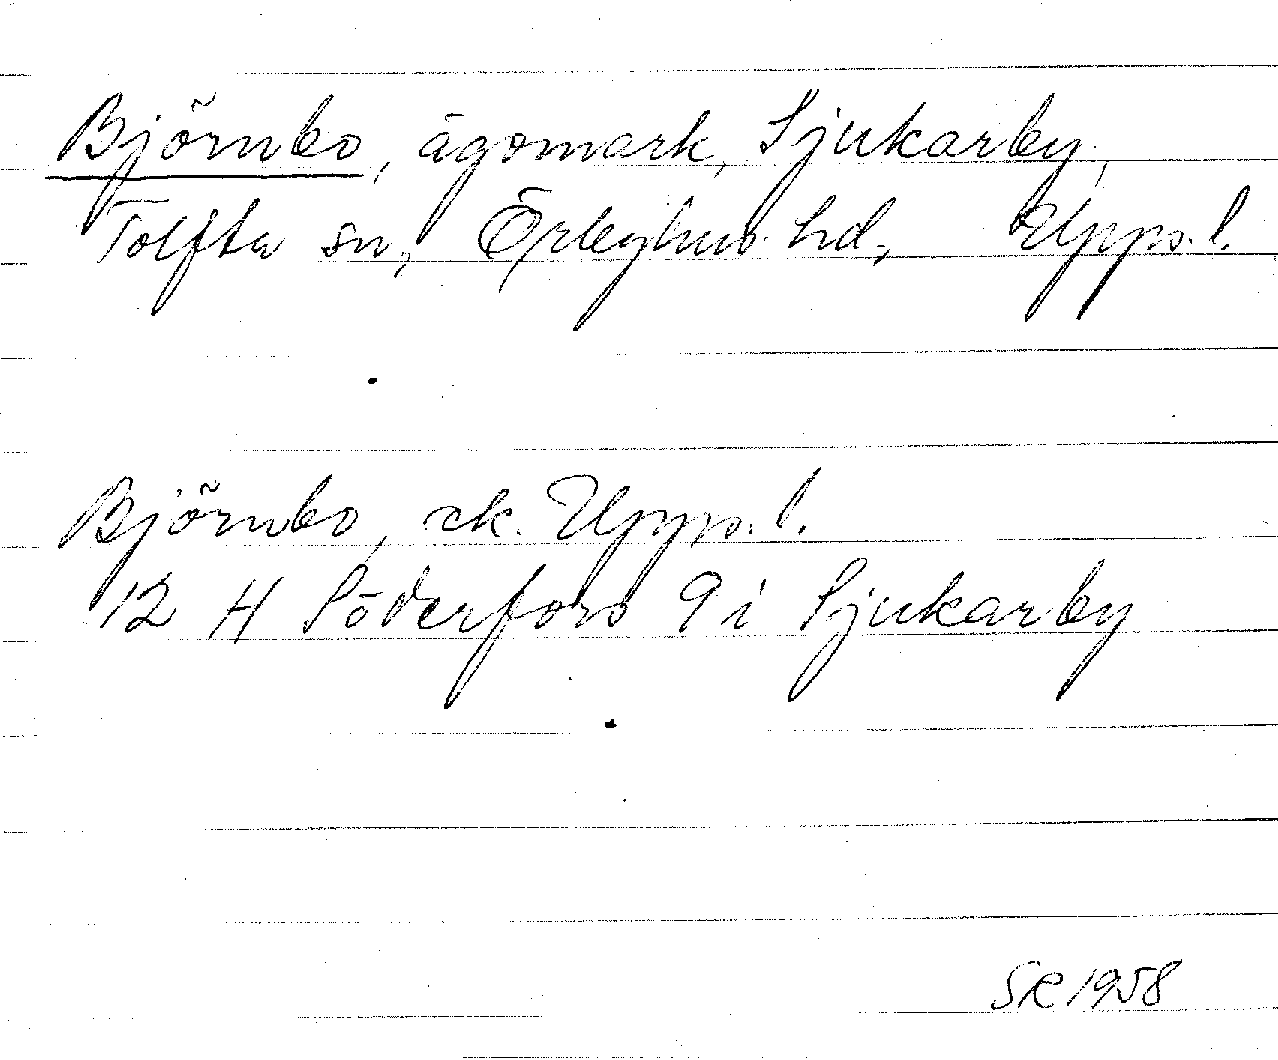 Björnbo, ägomark, Sjukarby,
Tolfta sn, Örbyhus hd, Upps. l.
Björnbo, ek. Upps. l.
12 H Söderfors 9 i Sjukarby
SR 1958